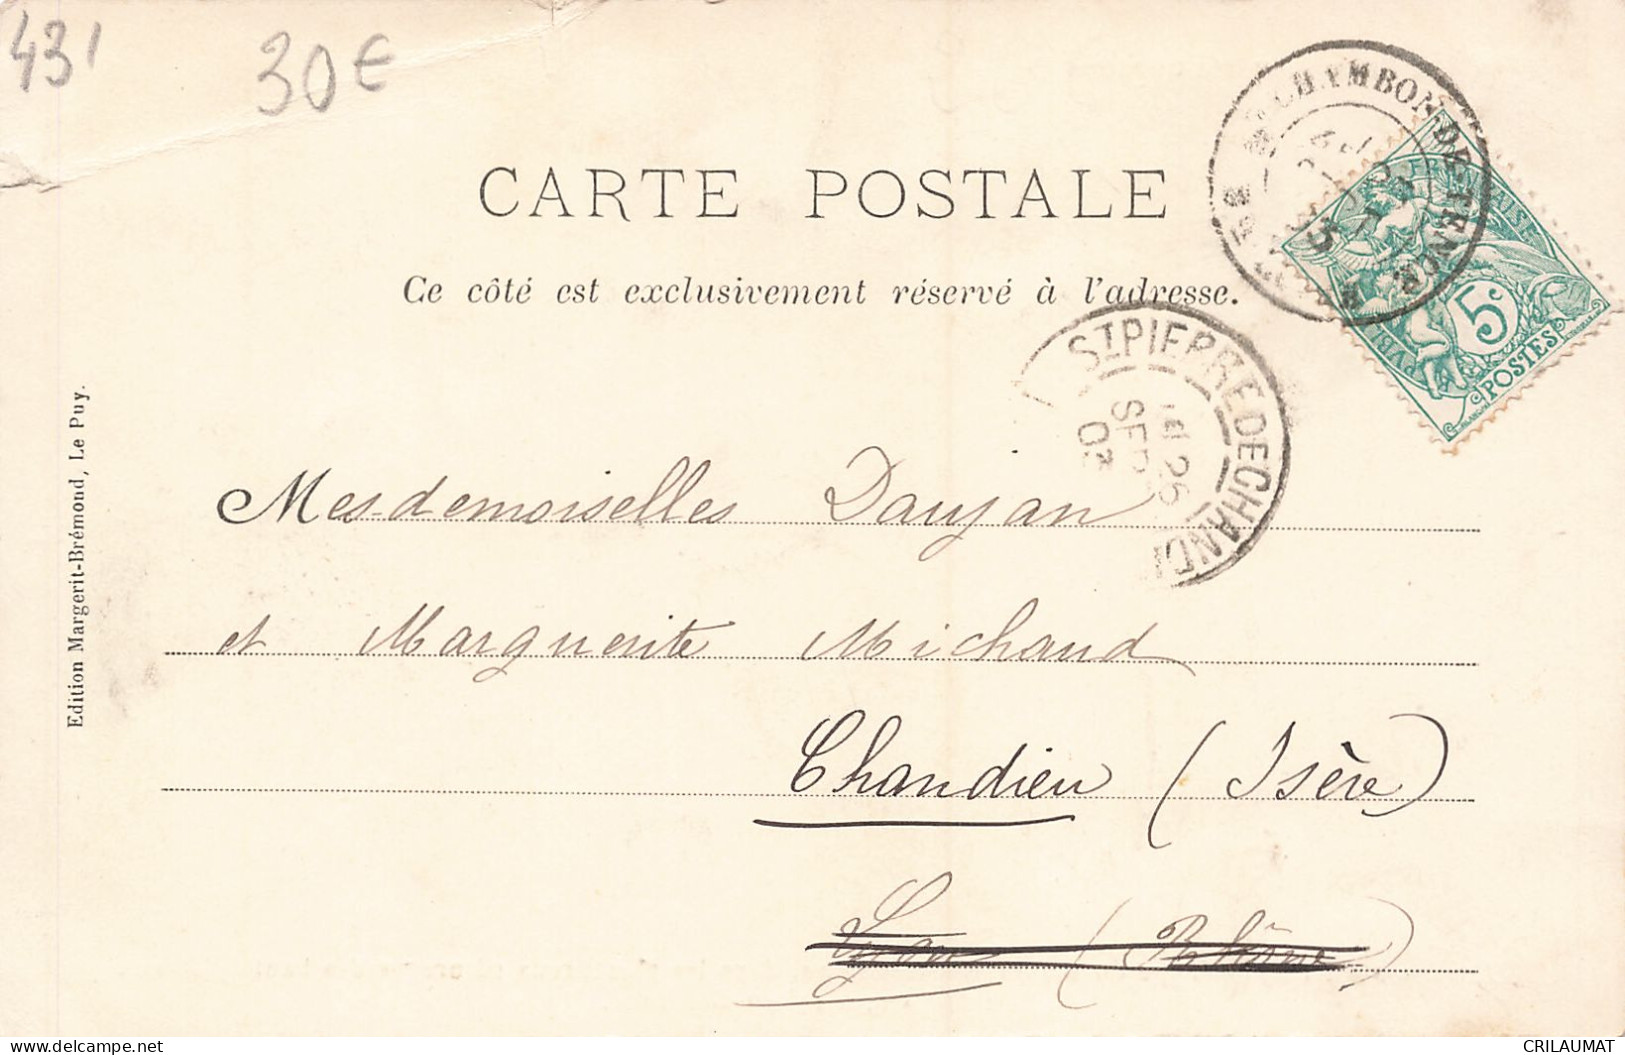 431
30€
CARTE POSTALE
Ce côté est exclusivement réservé à l'adresse.
CHAMBON-DE-TENCE
5c
POSTES
ST PIERRE DE CHAND
26
SEPT
03
Edition Margerit-Brémond, Le Puy.
Mesdemoiselles Daujan
et Marguerite Michaud
Chandieu (Isère)
Lyon (Rhône)
CRILAUMAT